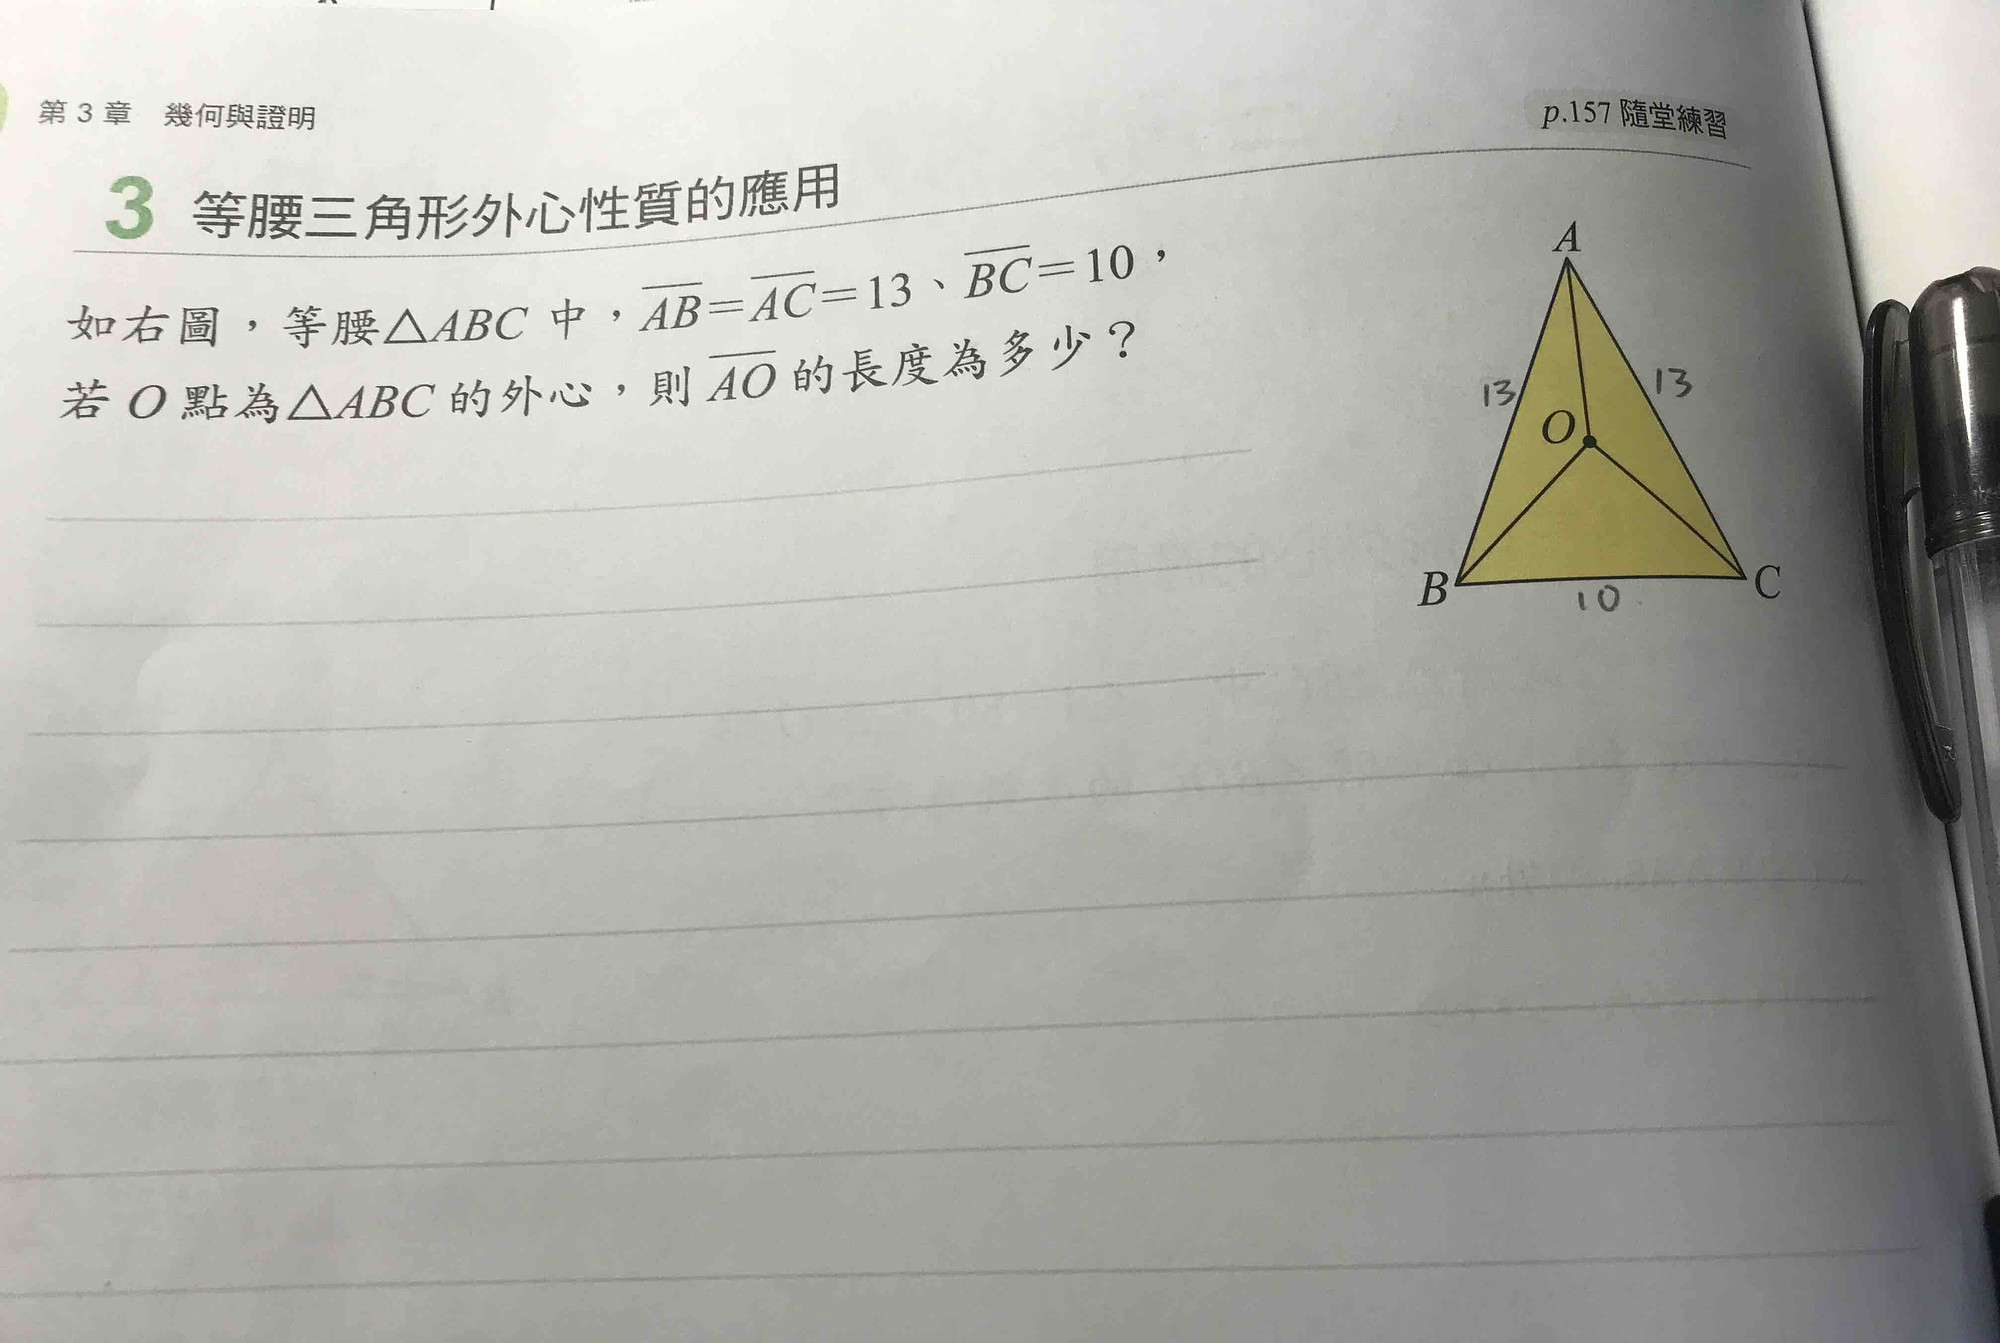 第3章 幾何與證明
p.157 隨堂練習
3 等腰三角形外心性質的應用
如右圖，等腰△ABC中，AB=AC=13、BC=10，
若O點為△ABC的外心，則AO的長度為多少？
A
13
13
O
B
C
10